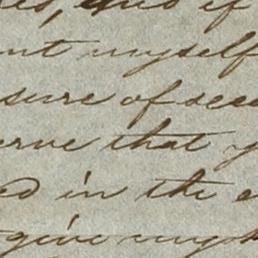 and if
myself
sure of see
erve that y
ed in the e
give my